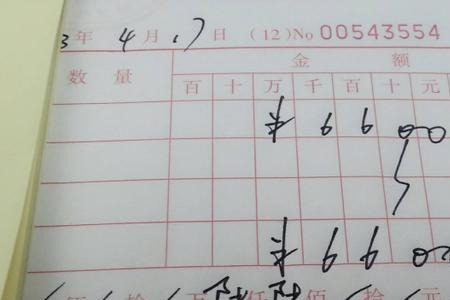 3 年 4 月 17 日 (12) No 00543554
数 量 金 额
百 十 万 千 百 十 元
¥ 6 6 0 0
¥ 6 6 0 0
万 陆 仟 陆 佰 拾 元